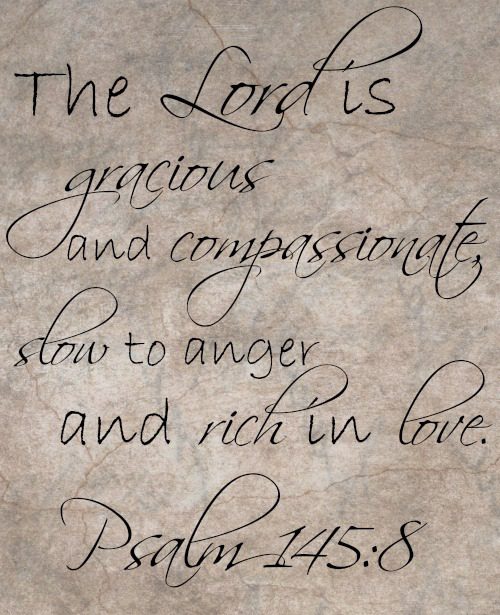 The Lord is
gracious
and compassionate,
slow to anger
and rich in love.
Psalm 145:8